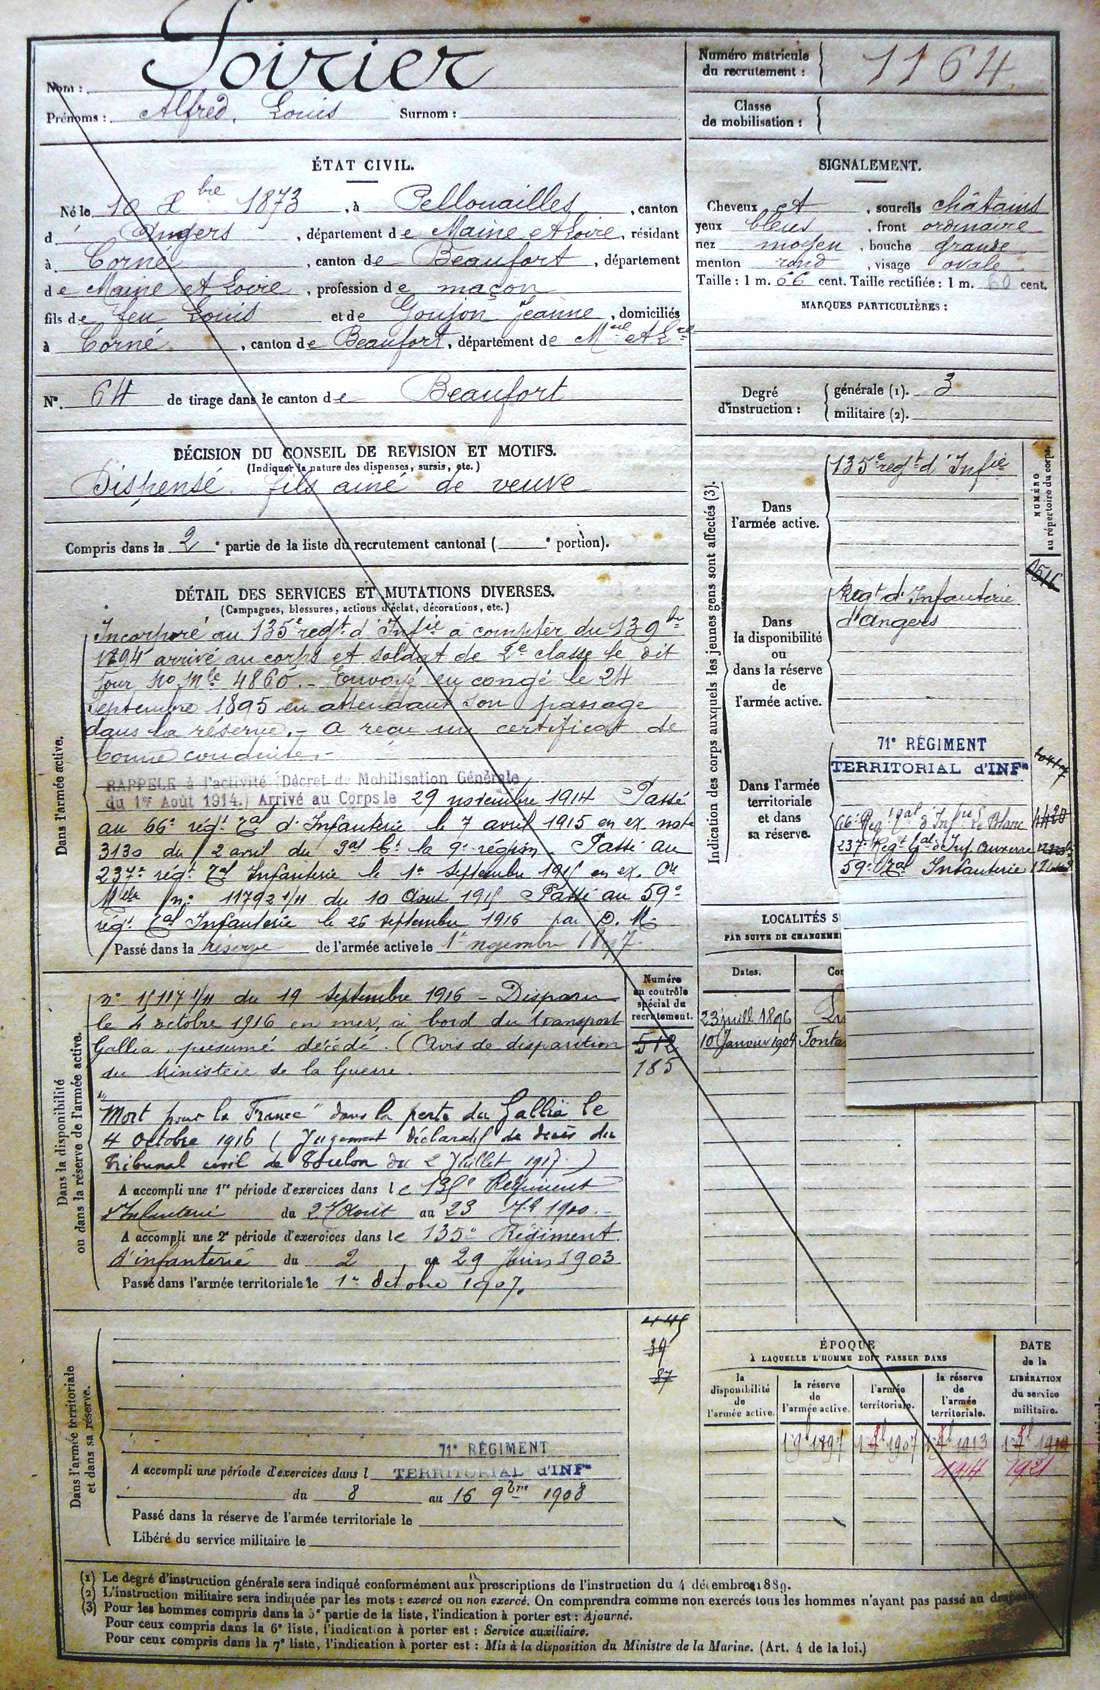 Nom : Poirier
Prénoms : Alfred, Louis Surnom :
Numéro matricule du recrutement : 1164
Classe de mobilisation :
ÉTAT CIVIL.
Né le 10 Xbre 1873, à Pellouailles, canton
d' Angers, département de Maine et Loire, résidant
à Corné, canton de Beaufort, département
de Maine et Loire, profession de maçon
fils de feu Louis et de Goujon Jeanne, domiciliés
à Corné, canton de Beaufort, département de Mne et Lre
SIGNALEMENT.
Cheveux et, sourcils châtains
yeux bleus, front ordinaire
nez moyen, bouche grande
menton rond, visage ovale
Taille : 1 m. 66 cent. Taille rectifiée : 1 m. 60 cent.
MARQUES PARTICULIÈRES :
N° 64 de tirage dans le canton de Beaufort
Degré d'instruction :
générale (1). 3
militaire (2).
DÉCISION DU CONSEIL DE REVISION ET MOTIFS.
(Indiquer la nature des dispenses, sursis, etc.)
Dispensé. fils aîné de veuve
Compris dans la 2e partie de la liste du recrutement cantonal ( e portion).
DÉTAIL DES SERVICES ET MUTATIONS DIVERSES.
(Campagnes, blessures, actions d'éclat, décorations, etc.)
Dans l'armée active.
Incorporé au 135e regt d'Infie à compter du 13 9bre
1894 arrivé au corps et soldat de 2e classe le dit
jour No Mle 4860. – Envoyé en congé le 24
Septembre 1895 en attendant son passage
dans la réserve. – A reçu un certificat de
bonne conduite. –
RAPPELÉ à l'activité (Décret de Mobilisation Générale
du 1er Août 1914.) Arrivé au Corps le 29 novembre 1914 Passé
au 66e régt Tal d'Infanterie le 7 avril 1915 en ex. note
3130 du 2 avril du Gal Ct la 9e région. Passé au
237e régt Tal Infanterie le 1er Septembre 1915 en ex. On
Mlle n° 11792 1/11 du 10 Aout 1915 Passé au 59e
régt Tal Infanterie le 26 septembre 1916 par D. M.
Passé dans la réserve de l'armée active le 1er novembre 1897.
Dans la disponibilité ou dans la réserve de l'armée active.
n° 15117 1/11 du 19 Septembre 1916 – Disparu
le 4 octobre 1916 en mer, à bord du transport
Gallia, présumé décédé (Avis de disparition
du Ministère de la Guerre.
"Mort pour la France" dans la perte du Gallia le
4 octobre 1916 (Jugement déclaratif de décès du
tribunal civil de Toulon du 2 Juillet 1917.)
A accompli une 1re période d'exercices dans le 135e Régiment
d'Infanterie du 27 Aout au 23 7bre 1900. –
A accompli une 2e période d'exercices dans le 135e Régiment
d'infanterie du 2 au 29 Juin 1903
Passé dans l'armée territoriale le 1er Octobre 1907.
Numéro au contrôle spécial du recrutement.
512
185
39
87
Dans l'armée territoriale et dans sa réserve.
A accompli une période d'exercices dans l 71e RÉGIMENT TERRITORIAL d'INFie
du 8 au 16 9bre 1908
Passé dans la réserve de l'armée territoriale le
Libéré du service militaire le
Indication des corps auxquels les jeunes gens sont affectés (3).
NUMÉRO au répertoire du corps.
Dans l'armée active.
135e regt d'Infie
Dans la disponibilité ou dans la réserve de l'armée active.
Regt d'Infanterie
d'Angers
Dans l'armée territoriale et dans sa réserve.
71e RÉGIMENT
TERRITORIAL d'INFie
66e Regt Tal d'Infie Le Blanc
237e Regt Tal d'Inf. Auxerre
59e Tal Infanterie
LOCALITÉS S
PAR SUITE DE CHANGEME
Dates. Co
23 juill 1896
10 Janvier 1904 Fonta
ÉPOQUE
À LAQUELLE L'HOMME DOIT PASSER DANS
la disponibilité de l'armée active.
la réserve de l'armée active.
l'armée territoriale.
la réserve de l'armée territoriale.
DATE de la LIBÉRATION du service militaire.
1 9b 1897 1907 1913 1919
1914 1921
(1) Le degré d'instruction générale sera indiqué conformément aux prescriptions de l'instruction du 4 décembre 1889.
(2) L'instruction militaire sera indiquée par les mots : exercé ou non exercé. On comprendra comme non exercés tous les hommes n'ayant pas passé au drapeau.
(3) Pour les hommes compris dans la 5e partie de la liste, l'indication à porter est : Ajourné.
Pour ceux compris dans la 6e liste, l'indication à porter est : Service auxiliaire.
Pour ceux compris dans la 7e liste, l'indication à porter est : Mis à la disposition du Ministre de la Marine. (Art. 4 de la loi.)